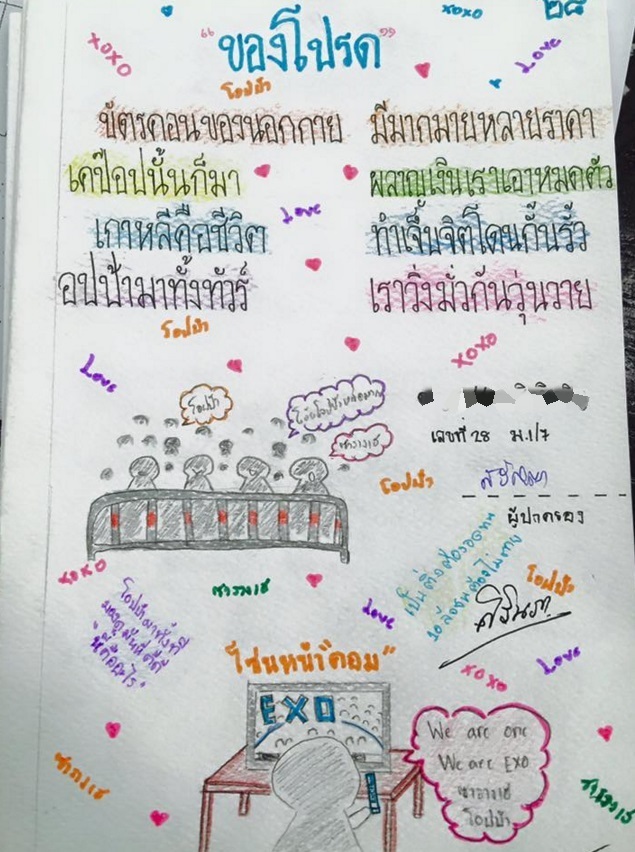 XOXO
XOXO
๒๘
"ของโปรด"
Love
โอปป้า
บัตรคอนของนอกกาย มีมากมายหลายราคา
เคป๊อปนั้นก็มา ผลาญเงินเราเอาหมดตัว
Love
เกาหลีคือชีวิต ทำเจ็บจิตโดนกั้นรั้ว
อปป้ามาทั้งทัวร์ เราวิ่งมั่วกันวุ่นวาย
โอปป้า
XOXO
Love
โอปป้า
ซารางเฮ
เลขที่ 28 ม.1/7
โอปป้า
ผู้ปกครอง
XOXO
ซารางเฮ
Love
เป็นติ่งต้องอดทน
โอปป้า
โอปป้ามาทั้งที
Love
XOXO
"โซนหน้าคอม"
EXO
We are one
We are EXO
ซารางเฮ
โอปป้า
ซารางเฮ
ซารางเฮ